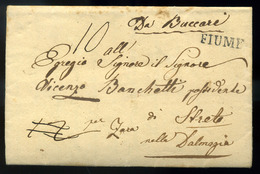 Da Buccari
FIUME
10 all'
Egregio Signore il Signore
Vicenzo Banchetti possidente
per Zara di
nella Dalmazia